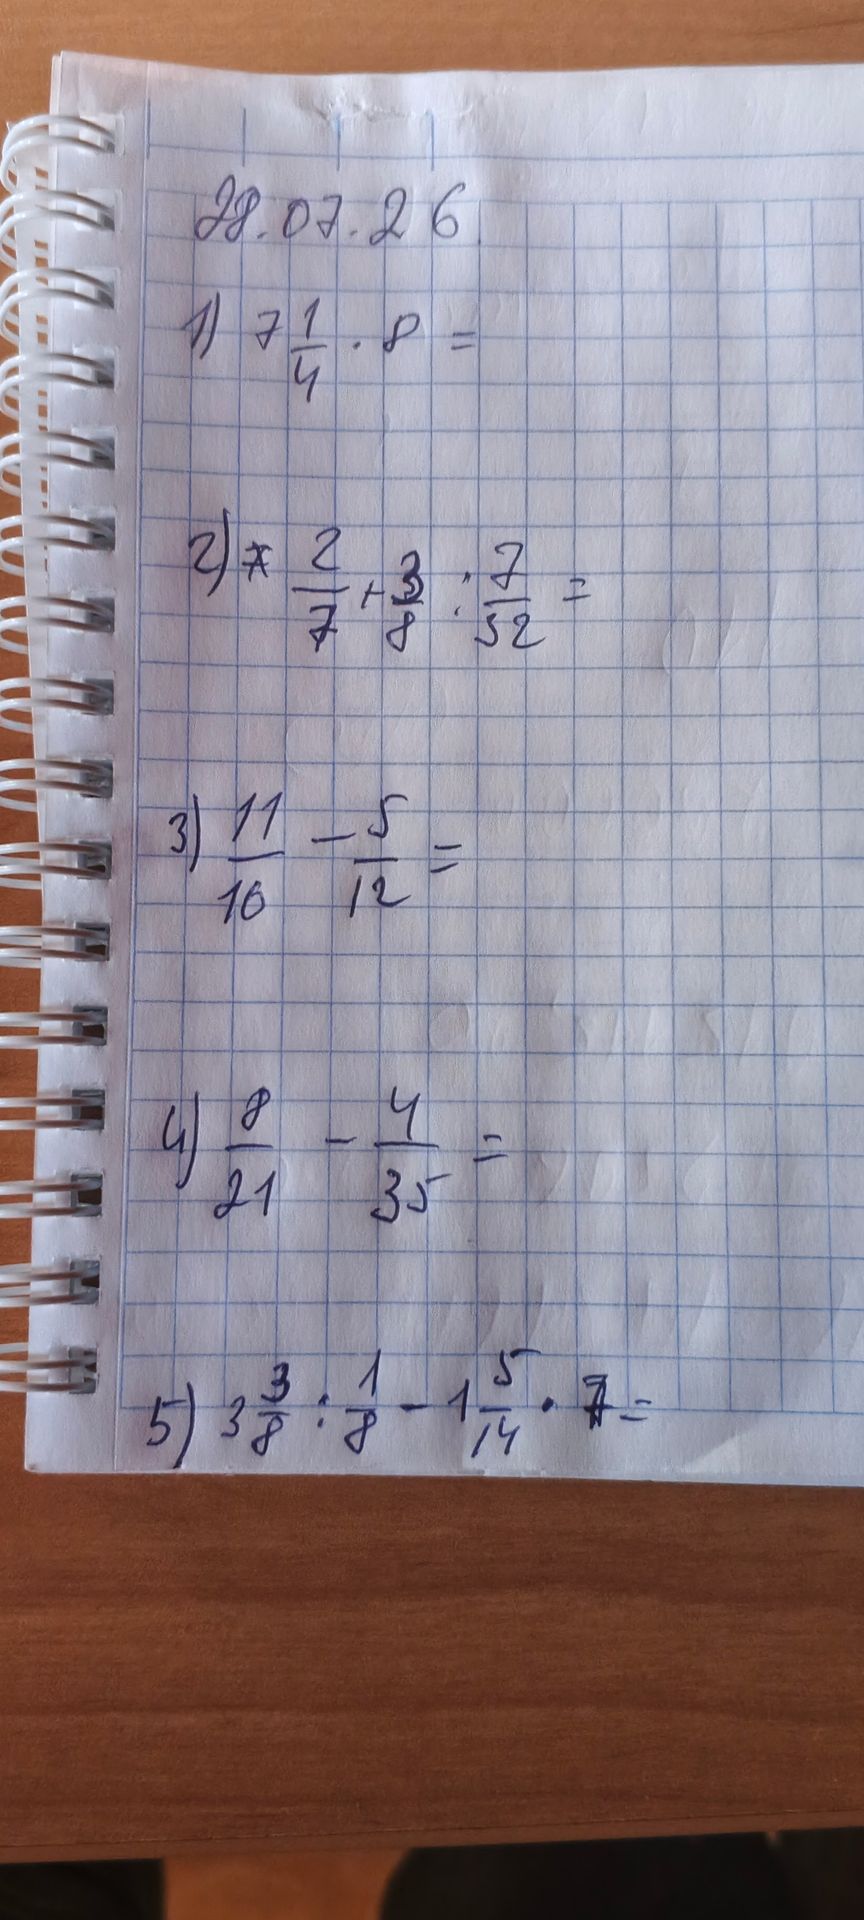 28.07.26
1) 7 1/4 · 8 =
2) 2/7 + 3/8 : 7/32 =
3) 11/16 - 5/12 =
4) 8/21 - 4/35 =
5) 3 3/8 : 1/8 - 1 5/14 · 7 =